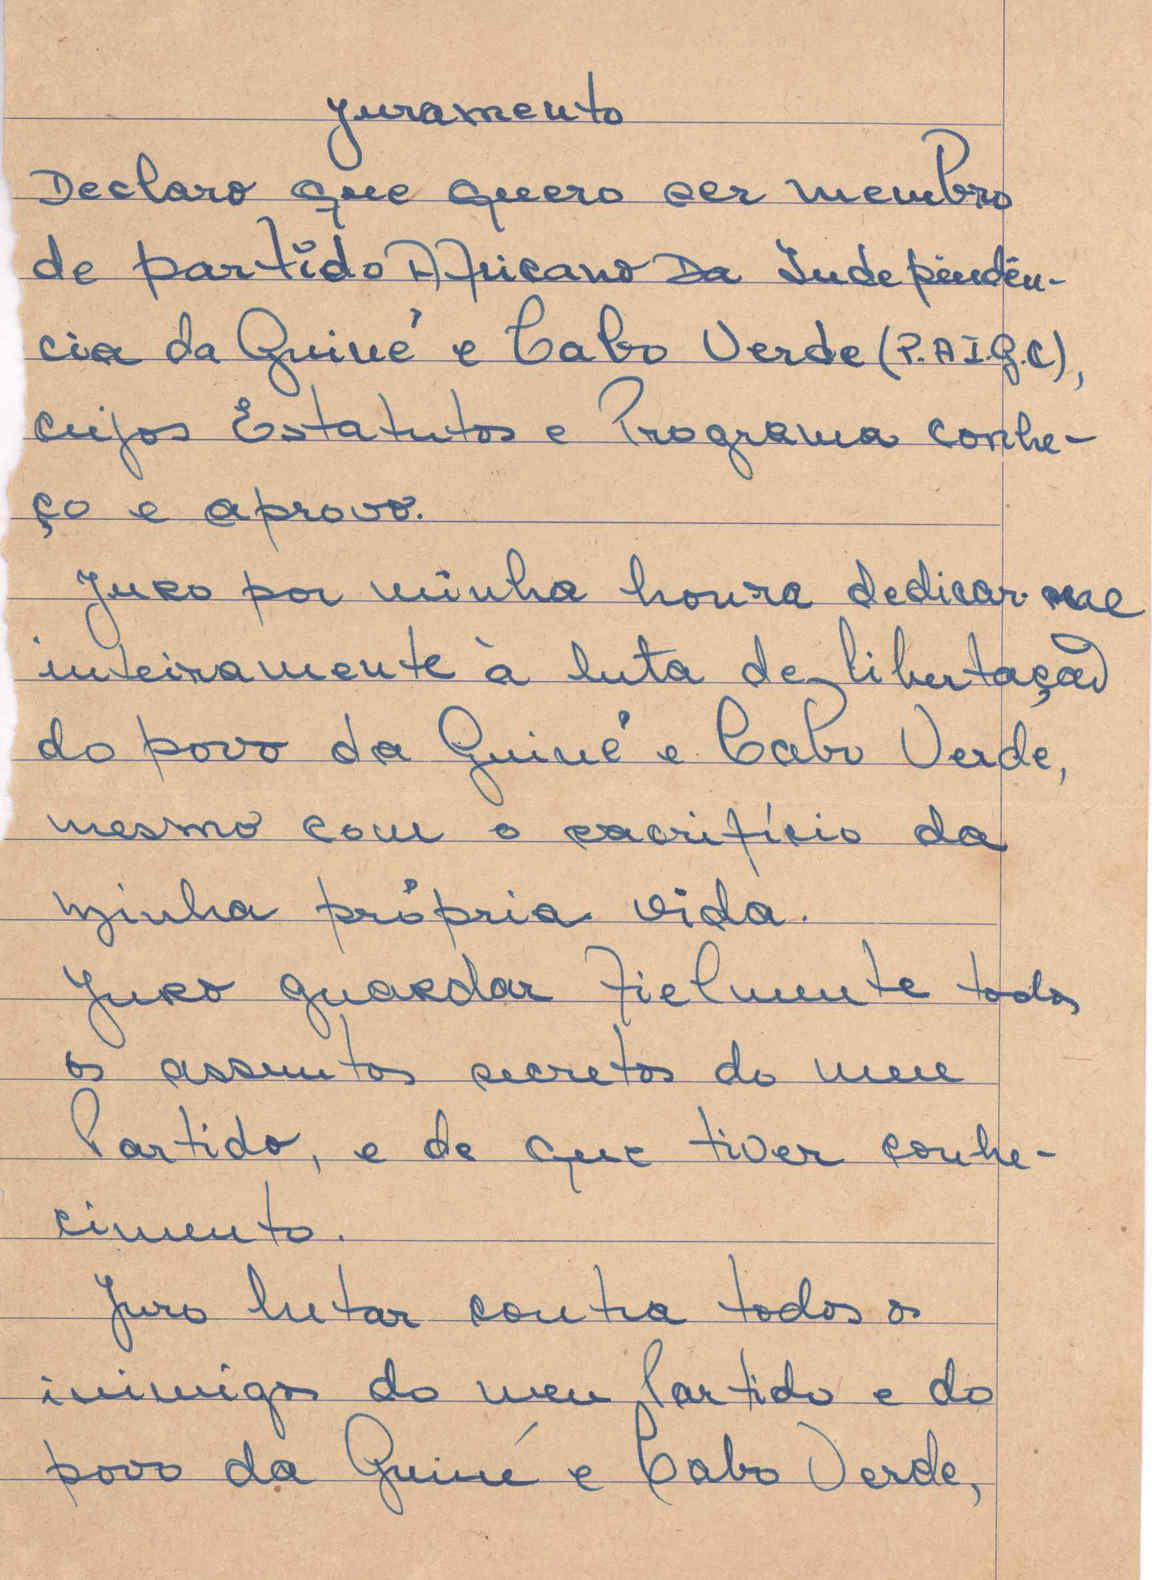 Juramento
Declaro que quero ser membro
de partido Africano Da Independên-
cia da Guiné e Cabo Verde (P.A.I.G.C),
cujos Estatutos e Programa conhe-
ço e aprovo.
Juro por minha honra dedicar-me
inteiramente à luta de libertação
do povo da Guiné e Cabo Verde,
mesmo com o sacrifício da
minha própria vida.
Juro guardar fielmente todos
os assuntos secretos do meu
Partido, e de que tiver conhe-
cimento.
Juro lutar contra todos os
inimigos do meu Partido e do
povo da Guiné e Cabo Verde,